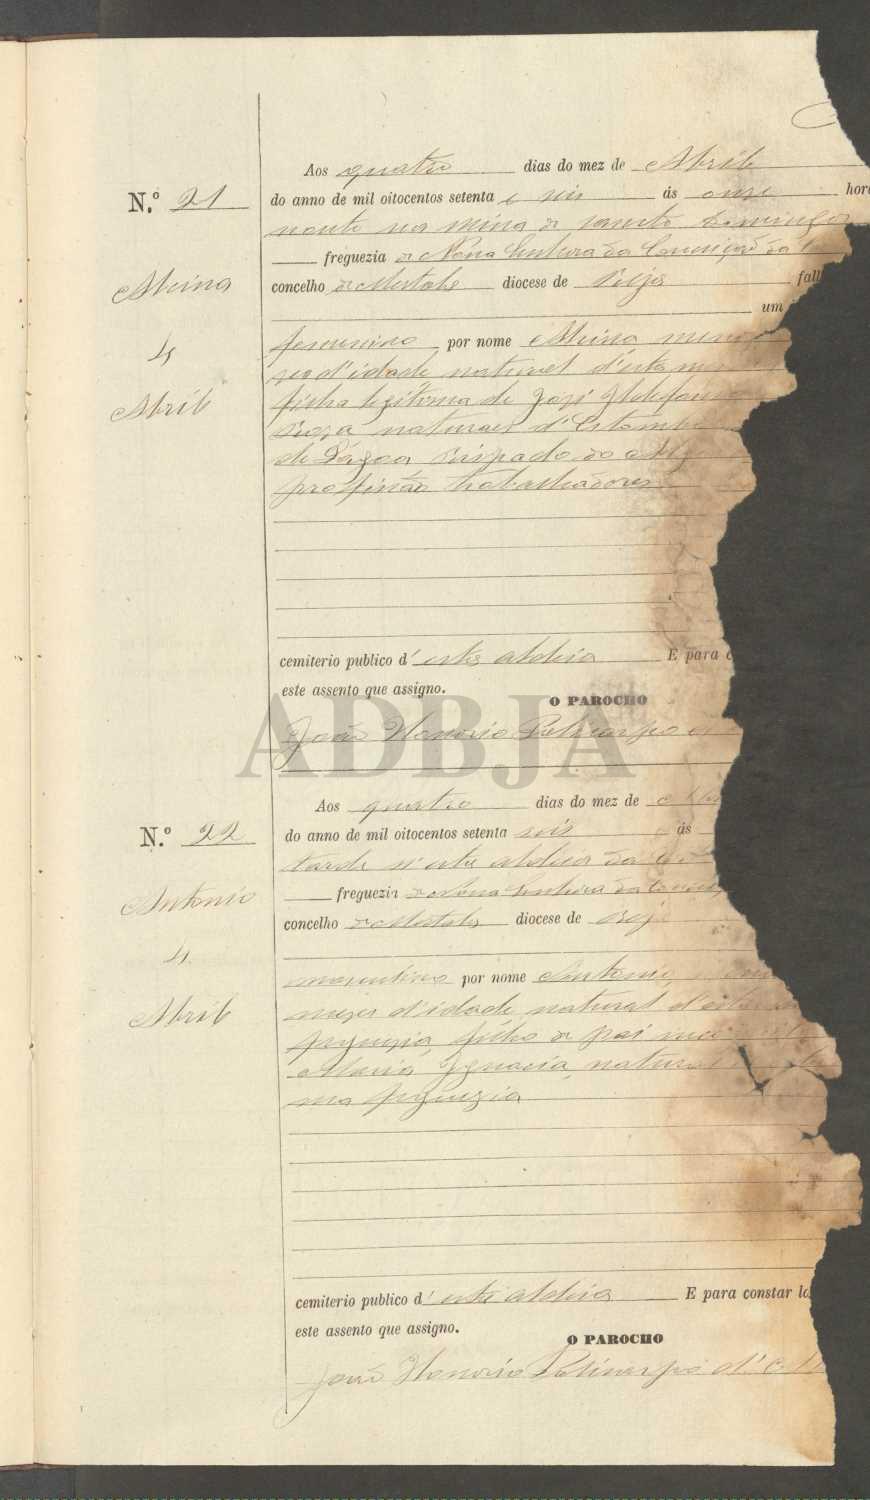 Aos quatro dias do mez de Abril
N.º 21
do anno de mil oitocentos setenta e seis ás onze hor
noute na mina de Santo Domingos
freguezia de Nossa Senhora da Conceição da
Maina
concelho de Mertola diocese de Beja fall
um
4
femenino por nome Maina
d'idade natural d'esta
Abril
filha legitima de José Ildefonso
naturaes d'Estombar
de Lagoa Bispado do Alg
profissão trabalhadores
cemiterio publico d'esta aldeia E para c
este assento que assigno.
O PAROCHO
João Honorio Policarpo
ADBJA
Aos quatro dias do mez de Abr
N.º 22
do anno de mil oitocentos setenta seis ás
tarde n'esta aldeia da
Antonio
freguezia de Nossa Senhora da Concei
concelho de Mertola diocese de Beja
4
masculino por nome Antonio
Abril
mezes d'idade natural d'esta
freguezia, filho de pai incognito
Maria Ignacia, natural
ma freguezia
cemiterio publico d'esta aldeia E para constar la
este assento que assigno.
O PAROCHO
João Honorio Policarpo